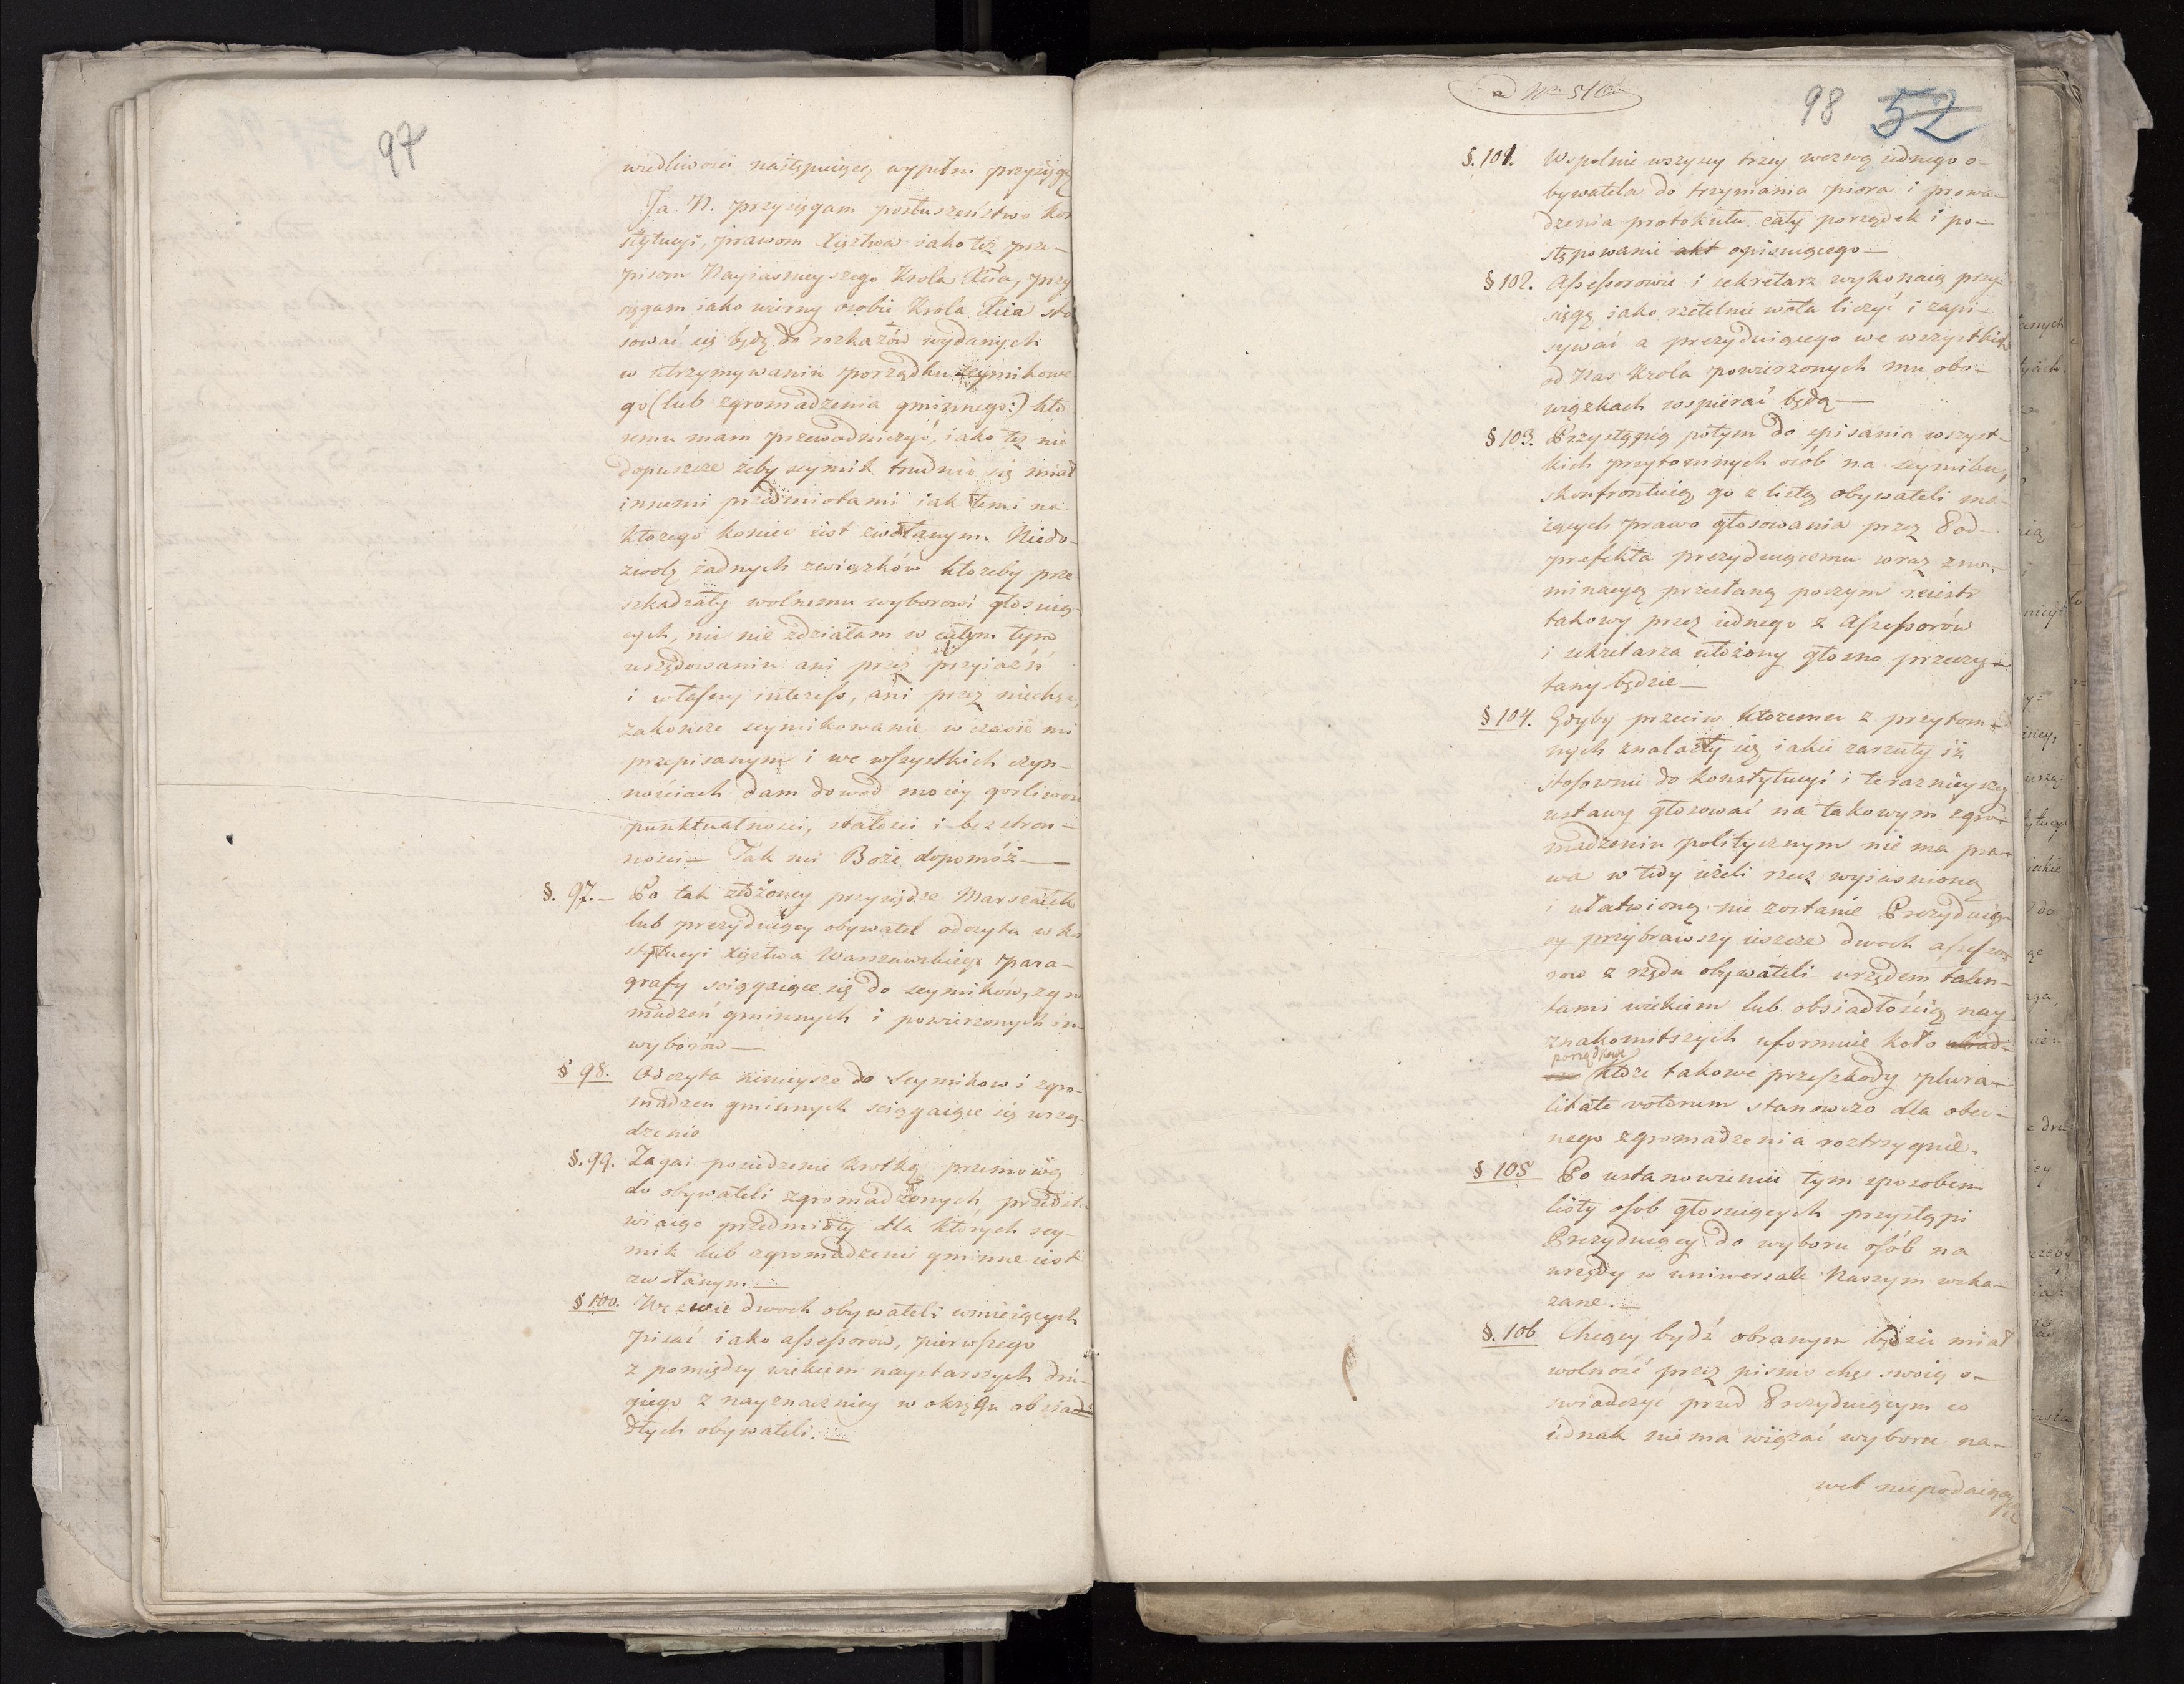 97
wiedliwości następuiącą wypełni przysięgę
Ja N. przysięgam posłuszeństwo kon
stytucyi, prawom Xięztwa iako też prze-
pisom Nayiasnieyszego Krola Xcia, przy
sięgam iako wierny osobie Krola Xcia sto
sować się będę do rozkazów wydanych
w utrzymywaniu porządku seymikowe
go (lub zgromadzenia gminnego:) któ
remu mam przewodniczyć, iako też nie
dopuszcze żeby seymik trudnić się miał
innemi przedmiotami iak temi na
ktorego koniec iest zwołanym. Niedo-
zwolę żadnych związków ktoreby prze
szkadzały wolnemu wyborowi głosuią-
cych, nic nie zdziałam w całym tym
urzędowaniu ani przez przyiaźń
i własny interess, ani przez niechęć,
zakończe seymikowanie w czasie mi
przepisanym i we wszystkich czyn-
nościach dam dowod moiey gorliwości
punktualnosci, stałości i bezstron-
ności — Tak mi Boże dopomóż —
§. 97. — Po tak złożoney przysiędze Marszałek
lub prezyduiący obywatel odczyta w kon
stytucyi Xięztwa Warszawskiego para-
grafy sciągaiące się do seymikow, zgro
madzeń gminnych i powierzonych im
wyborów —
§ 98. Odczyta ninieysze do Seymikow i zgro-
madzen gminnych sciągaiące się urzą-
dzenie
§. 99. Zagai posiedzenie krotką przemową
do obywateli zgromadzonych przedsta
wiaiąc przedmioty dla których sey-
mik lub zgromadzenie gminne iest
zwołanym —
§ 100. Wezwie dwoch obywateli umieiących
pisać iako assessorów, pierwszego
z pomiędzy wiekiem naystarszych dru-
giego z nayznaczniey w okręgu obsia-
dłych obywateli. —
ad Nr 510
98 52
§. 101. Wspolnie wszyscy trzey wezwą iednego o-
bywatela do trzymania piora i prowa-
dzenia protokułu cały porządek i po-
stępowanie akt opisuiącego —
§ 102. Assessorowie i sekretarz wykonaią przy-
sięgę iako rzetelnie wota liczyć i zapi-
sywać a prezyduiącego we wszystkich
od Nas Krola powierzonych mu obo-
wiązkach wspierać będą —
§ 103. Przystąpią potym do spisania wszyst-
kich przytomnych osób na seymiku,
skonfrontuią go z listą obywateli ma-
iących prawo głosowania przez Pod-
prefekta prezyduiącemu wraz z no-
minacyą przesłaną poczym reiestr
takowy przez iednego z Assessorów
i sekretarza ułożony głosno przeczy-
tany będzie —
§ 104. Gdyby przeciw ktoremu z przytom-
nych znalazły się iakie zarzuty iż
stosownie do konstytucyi i teraznieyszey
ustawy głosować na takowym zgro-
madzeniu politycznym nie ma pra-
wa w tedy ieżeli rzecz wyiasnioną
i ułatwioną nie zostanie Prezyduią-
cy przybrawszy ieszcze dwoch assesso
row z rzędu obywateli urzędem talen-
tami wiekiem lub obsiadłością nay
znakomitszych uformuie koło obrad-
porządkowe
cze ktore takowe przeszkody plura-
litate votorum stanowczo dla obec-
nego zgromadzenia roztrzygnie.
§ 105 Po ustanowieniu tym sposobem
listy osob głosuiących przystąpi
Prezyduiący do wyboru osób na
urzędy w uniwersale Naszym wska-
zane. —
§. 106 Chcący bydź obranym będzie miał
wolność przez pismo chęć swoią o-
swiadczyć przed Prezyduiącym co
iednak nie ma wiązać wyboru na-
wet niepodaiąc